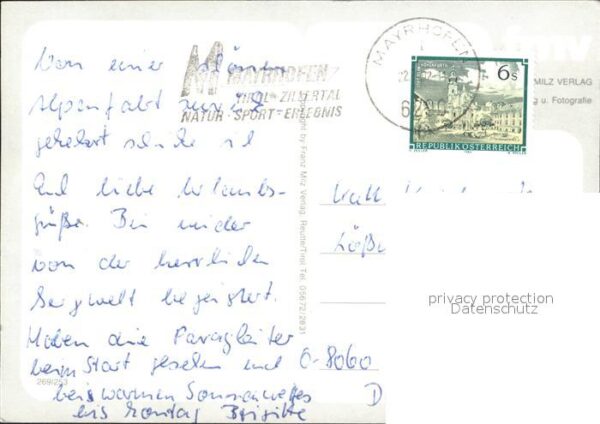 Von einer schönen
Alpenfahrt zurück
gekehrt schicke ich
Euch liebe Urlaubs-
grüße. Bin wieder
von der herrlichen
Bergwelt begeistert.
Haben die Paragleiter
beim Start gesehen und
bei warmen Sonnenwetter
bis Montag Brigitte
MAYRHOFEN
TIROL - ZILLERTAL
NATUR · SPORT · ERLEBNIS
MAYRHOFEN
6290
6 S
REPUBLIK ÖSTERREICH
MILZ VERLAG
u. Fotografie
Copyright by Franz Milz Verlag, Reutte/Tirol Tel. 05672/2831
O-8060
D
269/253
privacy protection
Datenschutz